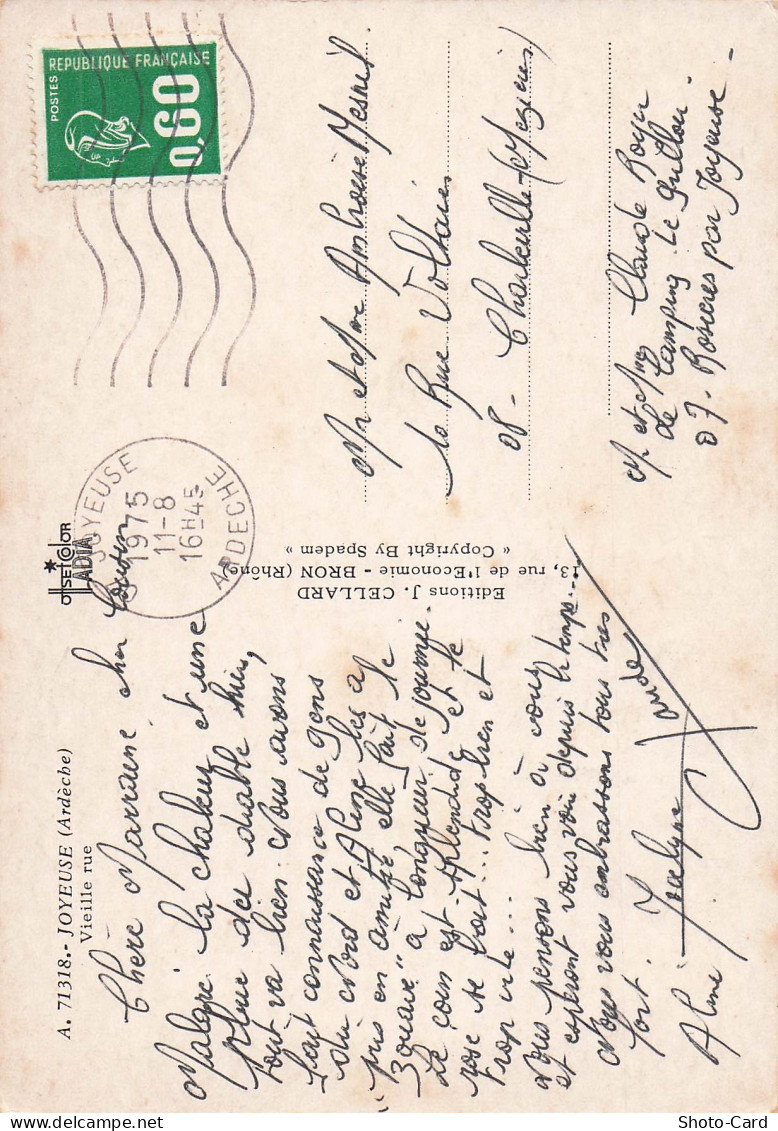 A. 71318.- JOYEUSE (Ardèche)
Vieille rue
Chère Marraine, cher
Malgré la chaleur et une
pluie des diable hier,
tout va bien. Nous avons
fait connaissance de gens
du Nord et Aline les a
"pris en amitié, elle fait le
Zouave" à longueur de journée.
Le coin est splendide et le
rosé se boit... trop bien et
trop vite...
Nous pensons bien à vous
et espérons vous voir depuis le temps...
Nous vous embrassons tous très
fort.
Aline Jocelyne Claude
OFFSET COLOR
ADIA
Editions J. CELLARD
13, rue de l'Economie - BRON (Rhône)
« Copyright By Spadem »
JOYEUSE
1975
11-8
16H45
ARDECHE
REPUBLIQUE FRANÇAISE
POSTES
0,60
Mr et Mme Ambroise Mesnil
10 Rue Voltaire
08 - Charleville-(Mezières)
Mr et Mme Claude Royer
Camping Le
07. Rosières par Joyeuse -
Shoto-Card